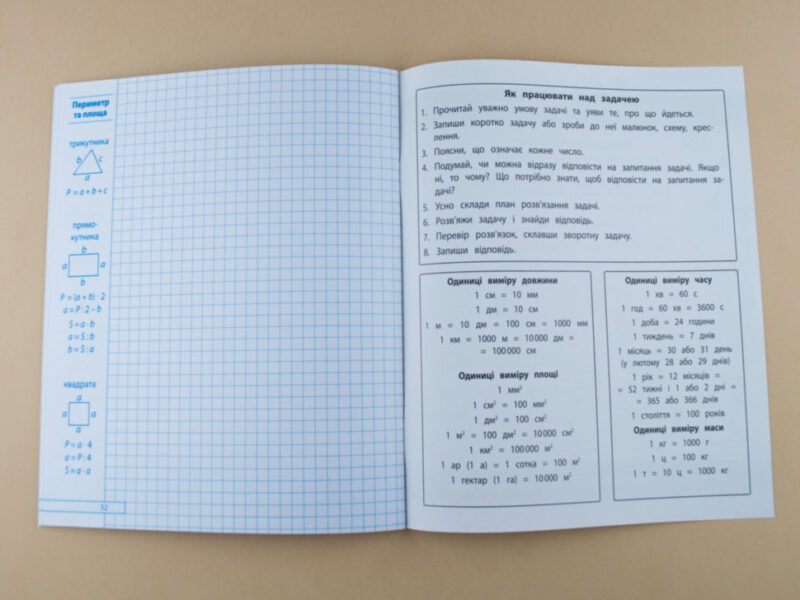 Периметр
та площа
трикутника
b
c
a
P = a + b + c
прямо-
кутника
b
a
a
b
P = (a + b) · 2
a = P : 2 – b
S = a · b
a = S : b
b = S : a
квадрата
a
a
a
a
P = a · 4
a = P : 4
S = a · a
52
Як працювати над задачею
1. Прочитай уважно умову задачі та уяви те, про що йдеться.
2. Запиши коротко задачу або зроби до неї малюнок, схему, крес-
лення.
3. Поясни, що означає кожне число.
4. Подумай, чи можна відразу відповісти на запитання задачі. Якщо
ні, то чому? Що потрібно знати, щоб відповісти на запитання за-
дачі?
5. Усно склади план розв'язання задачі.
6. Розв'яжи задачу і знайди відповідь.
7. Перевір розв'язок, склавши зворотну задачу.
8. Запиши відповідь.
Одиниці виміру довжини
1 см = 10 мм
1 дм = 10 см
1 м = 10 дм = 100 см = 1000 мм
1 км = 1000 м = 10000 дм =
= 100000 см
Одиниці виміру площі
1 мм²
1 см² = 100 мм²
1 дм² = 100 см²
1 м² = 100 дм² = 10000 см²
1 км² = 100000 м²
1 ар (1 а) = 1 сотка = 100 м²
1 гектар (1 га) = 10000 м²
Одиниці виміру часу
1 хв = 60 с
1 год = 60 хв = 3600 с
1 доба = 24 години
1 тиждень = 7 днів
1 місяць = 30 або 31 день
(у лютому 28 або 29 днів)
1 рік = 12 місяців =
= 52 тижні і 1 або 2 дні =
= 365 або 366 днів
1 століття = 100 років
Одиниці виміру маси
1 кг = 1000 г
1 ц = 100 кг
1 т = 10 ц = 1000 кг